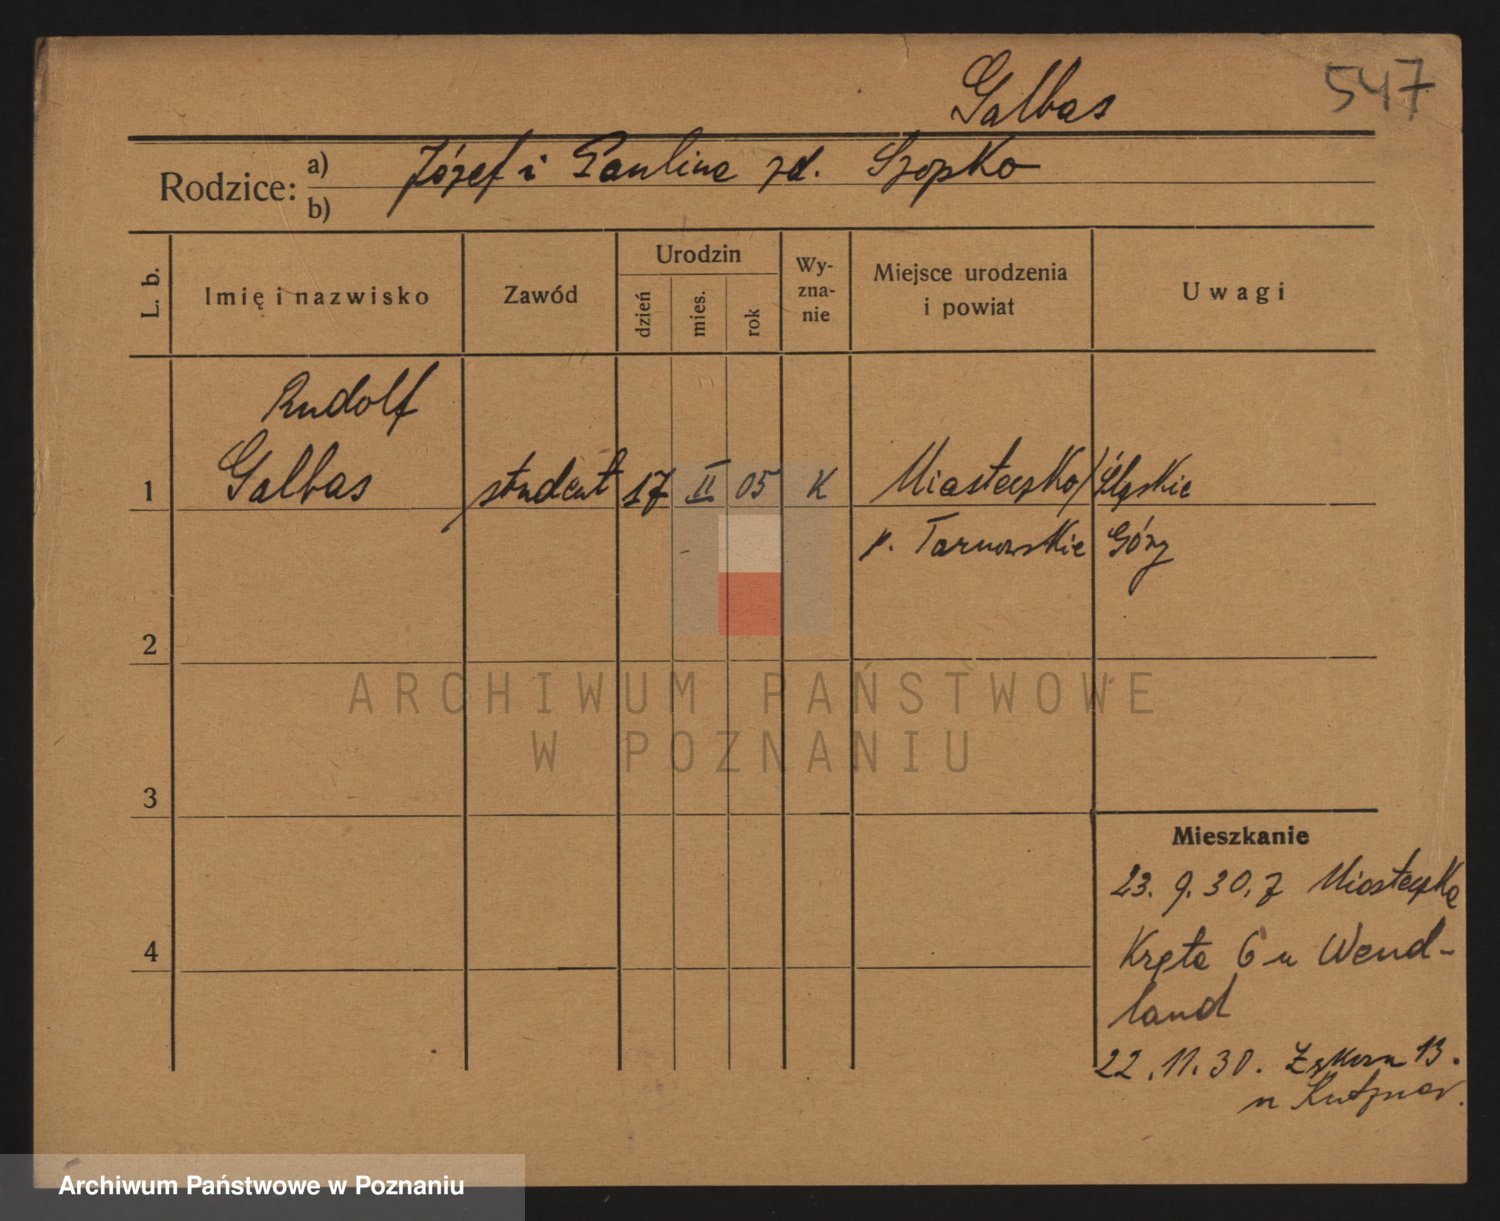 Galbas
547
Rodzice: a) Józef i Paulina zd. Szopko
b)
L. b. Imię i nazwisko Zawód Urodzin dzień mies. rok Wy-zna-nie Miejsce urodzenia i powiat Uwagi
Rudolf
1 Galbas student 17 II 05 K Miasteczko Śląskie
p. Tarnowskie Góry
2
ARCHIWUM PAŃSTWOWE
W POZNANIU
3
Mieszkanie
23. 9. 30. z Miasteczka
4
Kręta 6 u Wend-
land
22. 11. 30. 13.
u Kutzner.
Archiwum Państwowe w Poznaniu